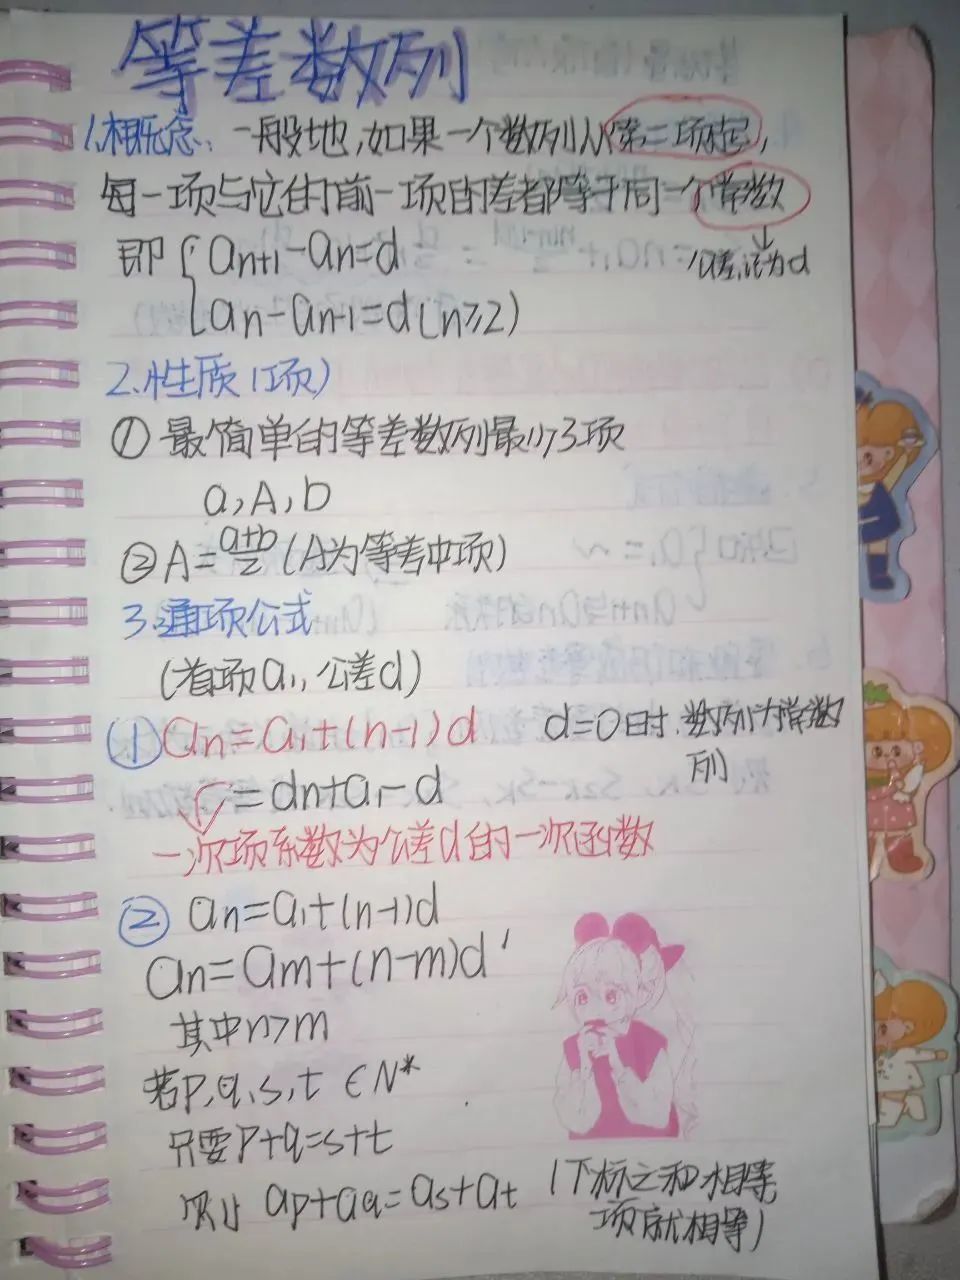 等差数列
1.概念：一般地，如果一个数列从第二项起，
每一项与它的前一项的差都等于同一个常数
即 { an+1-an=d
公差，记为d
an-an-1=d(n≥2)
2.性质(项)
① 最简单的等差数列最少3项
a, A, b
② A=a+b/2 (A为等差中项)
3.通项公式
(首项a1, 公差d)
① an=a1+(n-1)d
d=0时.数列为常数
列
=dn+a1-d
一次项系数为公差d的一次函数
② an=a1+(n-1)d
an=am+(n-m)d
其中n>m
若p,q,s,t ∈N*
只要p+q=s+t
则 ap+aq=as+at
(下标之和相等
项就相等)